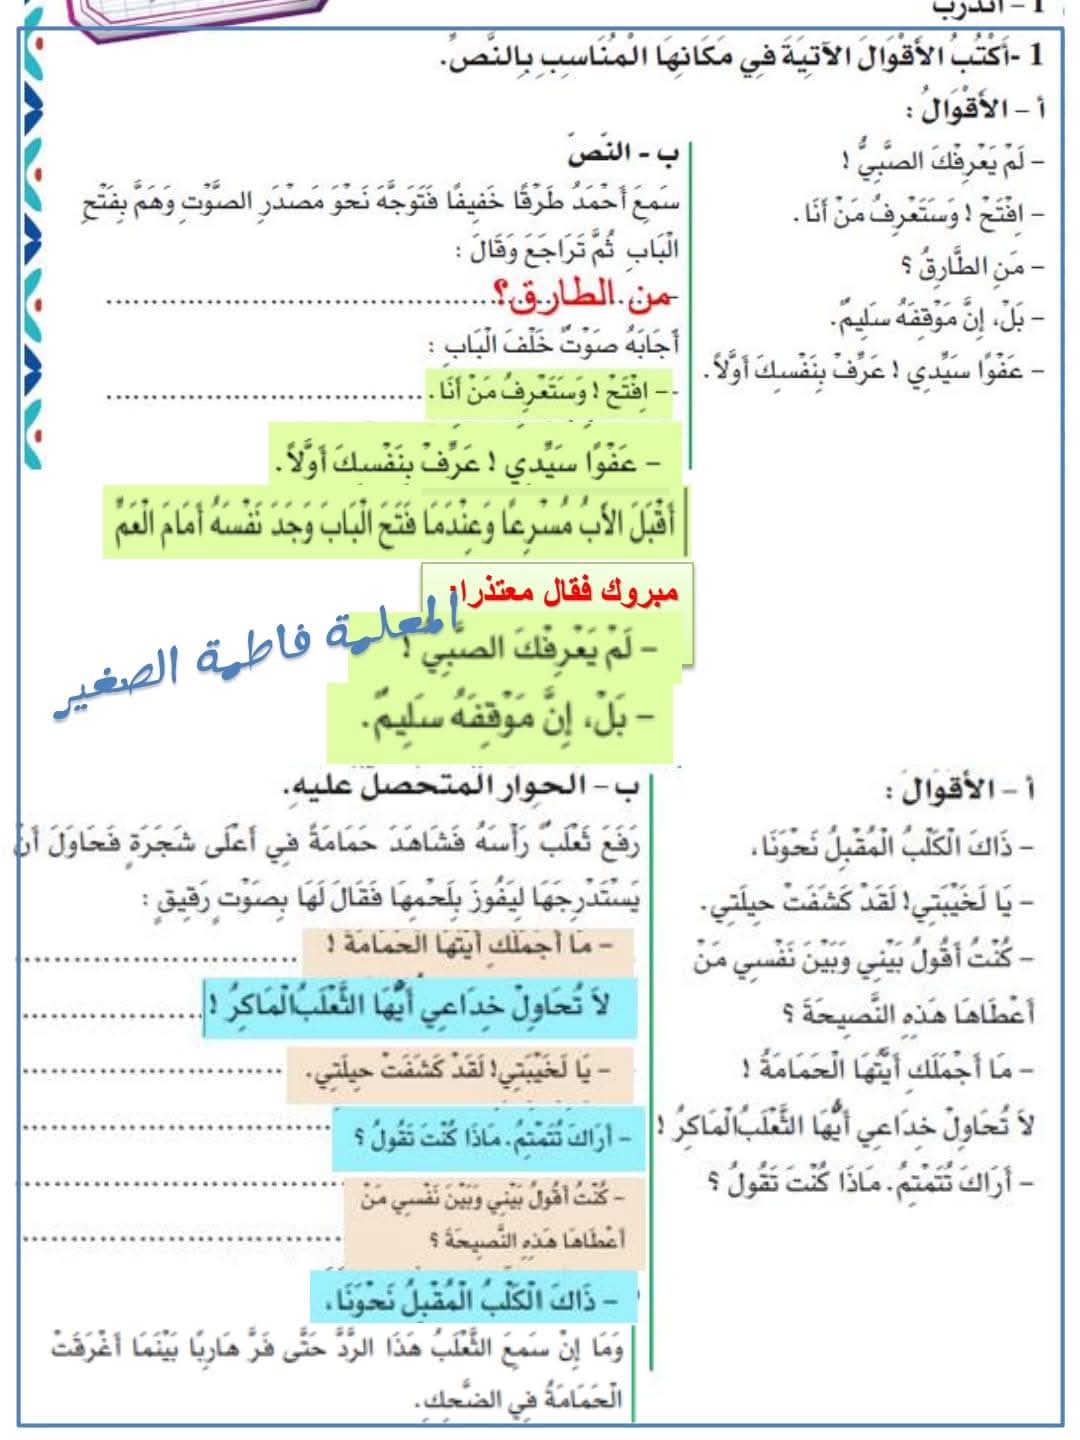 1 - أتدرب
1 -أَكْتُبُ الأَقْوَالَ الآتِيَةَ فِي مَكَانِهَا الْمُنَاسِبِ بِالنَّصِّ.
أ - الأَقْوَالُ :
- لَمْ يَعْرِفْكَ الصَّبِيُّ !
- اِفْتَحْ ! وَسَتَعْرِفُ مَنْ أَنَا .
- مَنِ الطَّارِقُ ؟
- بَلْ، إِنَّ مَوْقِفَهُ سَلِيمٌ.
- عَفْوًا سَيِّدِي ! عَرِّفْ بِنَفْسِكَ أَوَّلاً.
ب - النَّصّ
سَمِعَ أَحْمَدُ طَرْقًا خَفِيفًا فَتَوَجَّهَ نَحْوَ مَصْدَرِ الصَّوْتِ وَهَمَّ بِفَتْحِ
الْبَابِ ثُمَّ تَرَاجَعَ وَقَالَ :
- من الطارق؟
أَجَابَهُ صَوْتٌ خَلْفَ الْبَابِ :
- اِفْتَحْ ! وَسَتَعْرِفُ مَنْ أَنَا .
- عَفْوًا سَيِّدِي ! عَرِّفْ بِنَفْسِكَ أَوَّلاً.
أَقْبَلَ الأَبُ مُسْرِعًا وَعِنْدَمَا فَتَحَ الْبَابَ وَجَدَ نَفْسَهُ أَمَامَ الْعَمِّ
مبروك فقال معتذرا:
المعلمة فاطمة الصغير
- لَمْ يَعْرِفْكَ الصَّبِيُّ !
- بَلْ، إِنَّ مَوْقِفَهُ سَلِيمٌ.
أ - الأَقْوَالُ :
- ذَاكَ الْكَلْبُ الْمُقْبِلُ نَحْوَنَا.
- يَا لَخَيْبَتِي! لَقَدْ كَشَفَتْ حِيلَتِي.
- كُنْتُ أَقُولُ بَيْنِي وَبَيْنَ نَفْسِي مَنْ
أَعْطَاهَا هَذِهِ النَّصِيحَةَ ؟
- مَا أَجْمَلَكِ أَيَّتُهَا الْحَمَامَةُ !
لاَ تُحَاوِلْ خِدَاعِي أَيُّهَا الثَّعْلَبُ الْمَاكِرُ !
- أَرَاكَ تُتَمْتِمُ. مَاذَا كُنْتَ تَقُولُ ؟
ب - الحوار المتحصل عليه.
رَفَعَ ثَعْلَبٌ رَأْسَهُ فَشَاهَدَ حَمَامَةً فِي أَعْلَى شَجَرَةٍ فَحَاوَلَ أَنْ
يَسْتَدْرِجَهَا لِيَفُوزَ بِلَحْمِهَا فَقَالَ لَهَا بِصَوْتٍ رَقِيقٍ :
- مَا أَجْمَلَكِ أَيَّتُهَا الْحَمَامَةُ !
لاَ تُحَاوِلْ خِدَاعِي أَيُّهَا الثَّعْلَبُ الْمَاكِرُ !
- يَا لَخَيْبَتِي! لَقَدْ كَشَفَتْ حِيلَتِي.
- أَرَاكَ تُتَمْتِمُ. مَاذَا كُنْتَ تَقُولُ ؟
- كُنْتُ أَقُولُ بَيْنِي وَبَيْنَ نَفْسِي مَنْ
أَعْطَاهَا هَذِهِ النَّصِيحَةَ ؟
- ذَاكَ الْكَلْبُ الْمُقْبِلُ نَحْوَنَا.
وَمَا إِنْ سَمِعَ الثَّعْلَبُ هَذَا الرَّدَّ حَتَّى فَرَّ هَارِبًا بَيْنَمَا أَغْرَقَتْ
الْحَمَامَةُ فِي الضَّحِكِ.